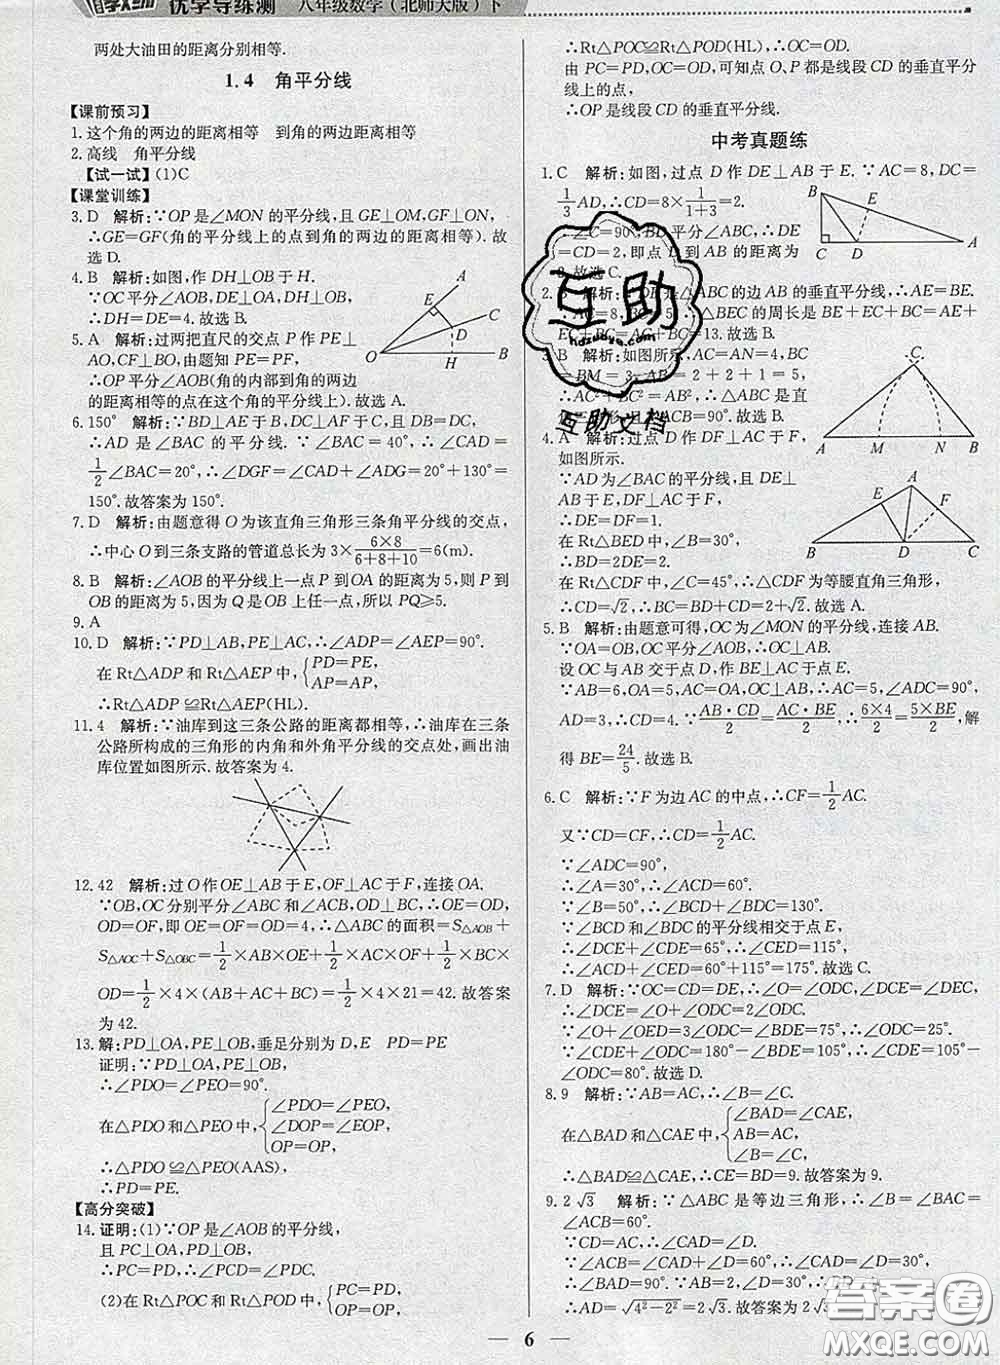 优学导练测 八年级数学(北师大版)下
两处大油田的距离分别相等.
1.4 角平分线
【课前预习】
1.这个角的两边的距离相等 到角的两边距离相等
2.高线 角平分线
【试一试】(1)C
【课堂训练】
3.D 解析:∵OP是∠MON的平分线,且GE⊥OM,GF⊥ON,
∴GE=GF(角的平分线上的点到角的两边的距离相等).故
选D.
4.B 解析:如图,作DH⊥OB于H.
∵OC平分∠AOB,DE⊥OA,DH⊥OB,
∴DH=DE=4.故选B.
5.A 解析:过两把直尺的交点P作PE⊥
AO,CF⊥BO,由题知PE=PF,
∴OP平分∠AOB(角的内部到角的两边
的距离相等的点在这个角的平分线上).故选A.
A
E
C
D
O
H
B
6.150° 解析:∵BD⊥AE于B,DC⊥AF于C,且DB=DC,
∴AD是∠BAC的平分线.∵∠BAC=40°,∴∠CAD=
1/2∠BAC=20°,∴∠DGF=∠CAD+∠ADG=20°+130°=
150°.故答案为150°.
7.D 解析:由题意得O为该直角三角形三条角平分线的交点,
∴中心O到三条支路的管道总长为3×(6×8)/(6+8+10)=6(m).
8.B 解析:∠AOB的平分线上一点P到OA的距离为5,则P到
OB的距离为5,因为Q是OB上任一点,所以PQ≥5.
9.A
10.D 解析:∵PD⊥AB,PE⊥AC,∴∠ADP=∠AEP=90°.
在Rt△ADP和Rt△AEP中,{PD=PE,
AP=AP,
∴Rt△ADP≌Rt△AEP(HL).
11.4 解析:∵油库到这三条公路的距离都相等,∴油库在三条
公路所构成的三角形的内角和外角平分线的交点处,画出油
库位置如图所示.故答案为4.
12.42 解析:过O作OE⊥AB于E,OF⊥AC于F,连接OA.
∵OB,OC分别平分∠ABC和∠ACB,OD⊥BC,∴OE=OD,
OD=OF,即OE=OF=OD=4,∴△ABC的面积=S△AOB+
S△AOC+S△OBC=1/2×AB×OE+1/2×AC×OF+1/2×BC×
OD=1/2×4×(AB+AC+BC)=1/2×4×21=42.故答案
为42.
13.解:PD⊥OA,PE⊥OB,垂足分别为D,E PD=PE
证明:∵PD⊥OA,PE⊥OB,
∴∠PDO=∠PEO=90°.
在△PDO和△PEO中,{∠PDO=∠PEO,
∠POD=∠POE,
OP=OP,
∴△PDO≌△PEO(AAS),
∴PD=PE.
【高分突破】
14.证明:(1)∵OP是∠AOB的平分线,
且PC⊥OA,PD⊥OB,
∴PC=PD,∴∠PCD=∠PDC.
(2)在Rt△POC和Rt△POD中,{PC=PD,
OP=OP,
∴Rt△POC≌Rt△POD(HL),∴OC=OD.
由PC=PD,OC=OD,可知点O、P都是线段CD的垂直平分
线上的点,
∴OP是线段CD的垂直平分线.
中考真题练
1.C 解析:如图,过点D作DE⊥AB于E.∵AC=8,DC=
1/3AD,∴CD=8×1/(1+3)=2.
∵∠C=90°,BD平分∠ABC,∴DE
=CD=2,即点D到AB的距离为
2.故选C.
B
E
C
D
A
2.B 解析:∵DE是△ABC的边AB的垂直平分线,∴AE=BE.
∵AC=8,BC=5,∴△BEC的周长是BE+EC+BC=AE+
EC+BC=AC+BC=13.故选B.
3.B 解析:如图所示,AC=AN=4,BC
=BM=3,AB=2+2+1=5,
∴AC²+BC²=AB²,∴△ABC是直
角三角形,∴∠ACB=90°.故选B.
C
A
M
N
B
4.A 解析:过点D作DF⊥AC于F,
如图所示.
∵AD为∠BAC的平分线,且DE⊥
AB于E,DF⊥AC于F,
∴DE=DF=1.
在Rt△BED中,∠B=30°,
∴BD=2DE=2.
在Rt△CDF中,∠C=45°,∴△CDF为等腰直角三角形,
∴CD=√2,∴BC=BD+CD=2+√2.故选A.
A
E
F
B
D
C
5.B 解析:由题意可得,OC为∠MON的平分线,连接AB.
∵OA=OB,OC平分∠AOB,∴OC⊥AB.
设OC与AB交于点D,作BE⊥AC于点E.
∵AB=6,OA=5,AC=OA,OC⊥AB,∴AC=5,∠ADC=90°,
AD=3,∴CD=4.∵(AB·CD)/2=(AC·BE)/2,∴(6×4)/2=(5×BE)/2,解
得BE=24/5.故选B.
6.C 解析:∵F为边AC的中点,∴CF=1/2AC.
又∵CD=CF,∴CD=1/2AC.
∵∠ADC=90°,
∴∠A=30°,
∴∠ACD=60°.
∵∠BCD和∠BDC的平分线相交于点E,
∴∠DCE+∠CDE=65°,∴∠CED=115°,
∴∠ACD+∠CED=60°+115°=175°.故选C.
7.D 解析:∵OC=CD=DE,∴∠O=∠ODC,∠DCE=∠DEC,
∴∠DCE=∠O+∠ODC=2∠ODC.
∵∠O+∠OED=3∠ODC=∠BDE=75°,∴∠ODC=25°.
∵∠CDE+∠ODC=180°-∠BDE=105°,∴∠CDE=105°
-∠ODC=80°.故选D.
8.9 解析:∵AB=AC,∴∠B=∠C.
在△BAD和△CAE中,{∠BAD=∠CAE,
AB=AC,
∠B=∠C,
∴△BAD≌△CAE,∴CE=BD=9.故答案为9.
9.2√3 解析:∵△ABC是等边三角形,∴∠B=∠BAC=
∠ACB=60°.
∵CD=AC,∴∠CAD=∠D.
∵∠ACB=∠CAD+∠D=60°,∴∠CAD=∠D=30°,
∴AD=√(4²-2²)=2√3.
6
互助
hdzuoye.com
互助文档
答案圈
MXQE.COM